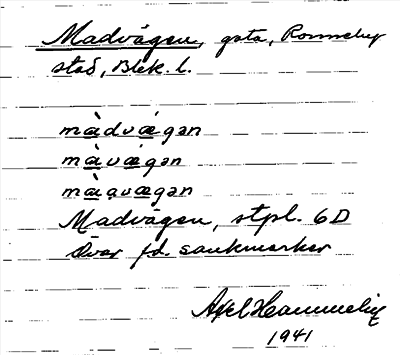 Madvägen, gata, Ronneby
stad, Blek. l.
màdvǽgən
màvǽgən
màavægən
Madvägen, stpl. 6D
Över fd. sankmarker
Axel
1941